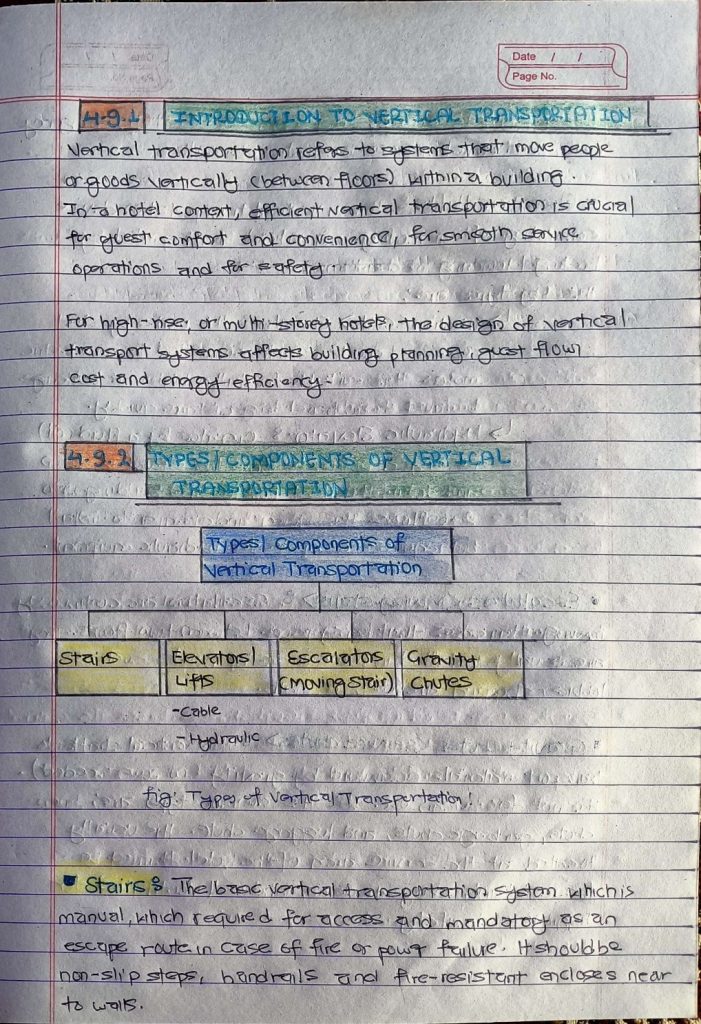 Date / /
Page No.
4.9.1 INTRODUCTION TO VERTICAL TRANSPORTATION
Vertical transportation refers to systems that move people
or goods vertically (between floors) within a building.
In a hotel context, efficient vertical transportation is crucial
for guest comfort and convenience, for smooth service
operations and for safety.
For high-rise, or multi-storey hotels, the design of vertical
transport systems affects building planning, guest flow,
cost and energy efficiency.
4.9.2 TYPES/COMPONENTS OF VERTICAL
TRANSPORTATION
Types/ Components of
Vertical Transportation
Stairs
Elevators/
Lifts
-Cable
-Hydraulic
Escalators
(moving stair)
Gravity
Chutes
fig: Types of Vertical Transportation!
Stairs: The basic vertical transportation system which is
manual, which required for access and mandatory as an
escape route in case of fire or power failure. It should be
non-slip steps, handrails and fire-resistant encloses near
to walls.